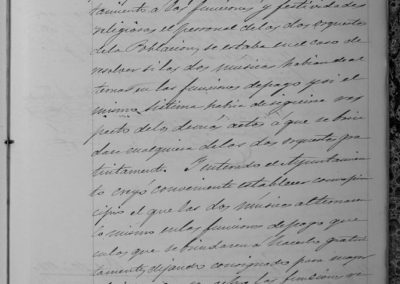 tamiento á las funciones y festividades
religiosas el personal de las dos orquestas
de la Poblacion, se estaba en el caso de
resolver si las dos músicas habian de al
ternar en las funciones de pago y si el
mismo sistema habia de seguirse res
pecto de los demás actos á que se brin
dase cualquiera de las dos orquestas gra
tuitamente. Enterado el Ayuntamien
to creyó conveniente establecer como prin
cipio el que las dos músicas alternasen
lo mismo en las funciones de pago que
en las que se brindaran á hacerlo gratui
tamente, dejando consignado para mayor
las funciones